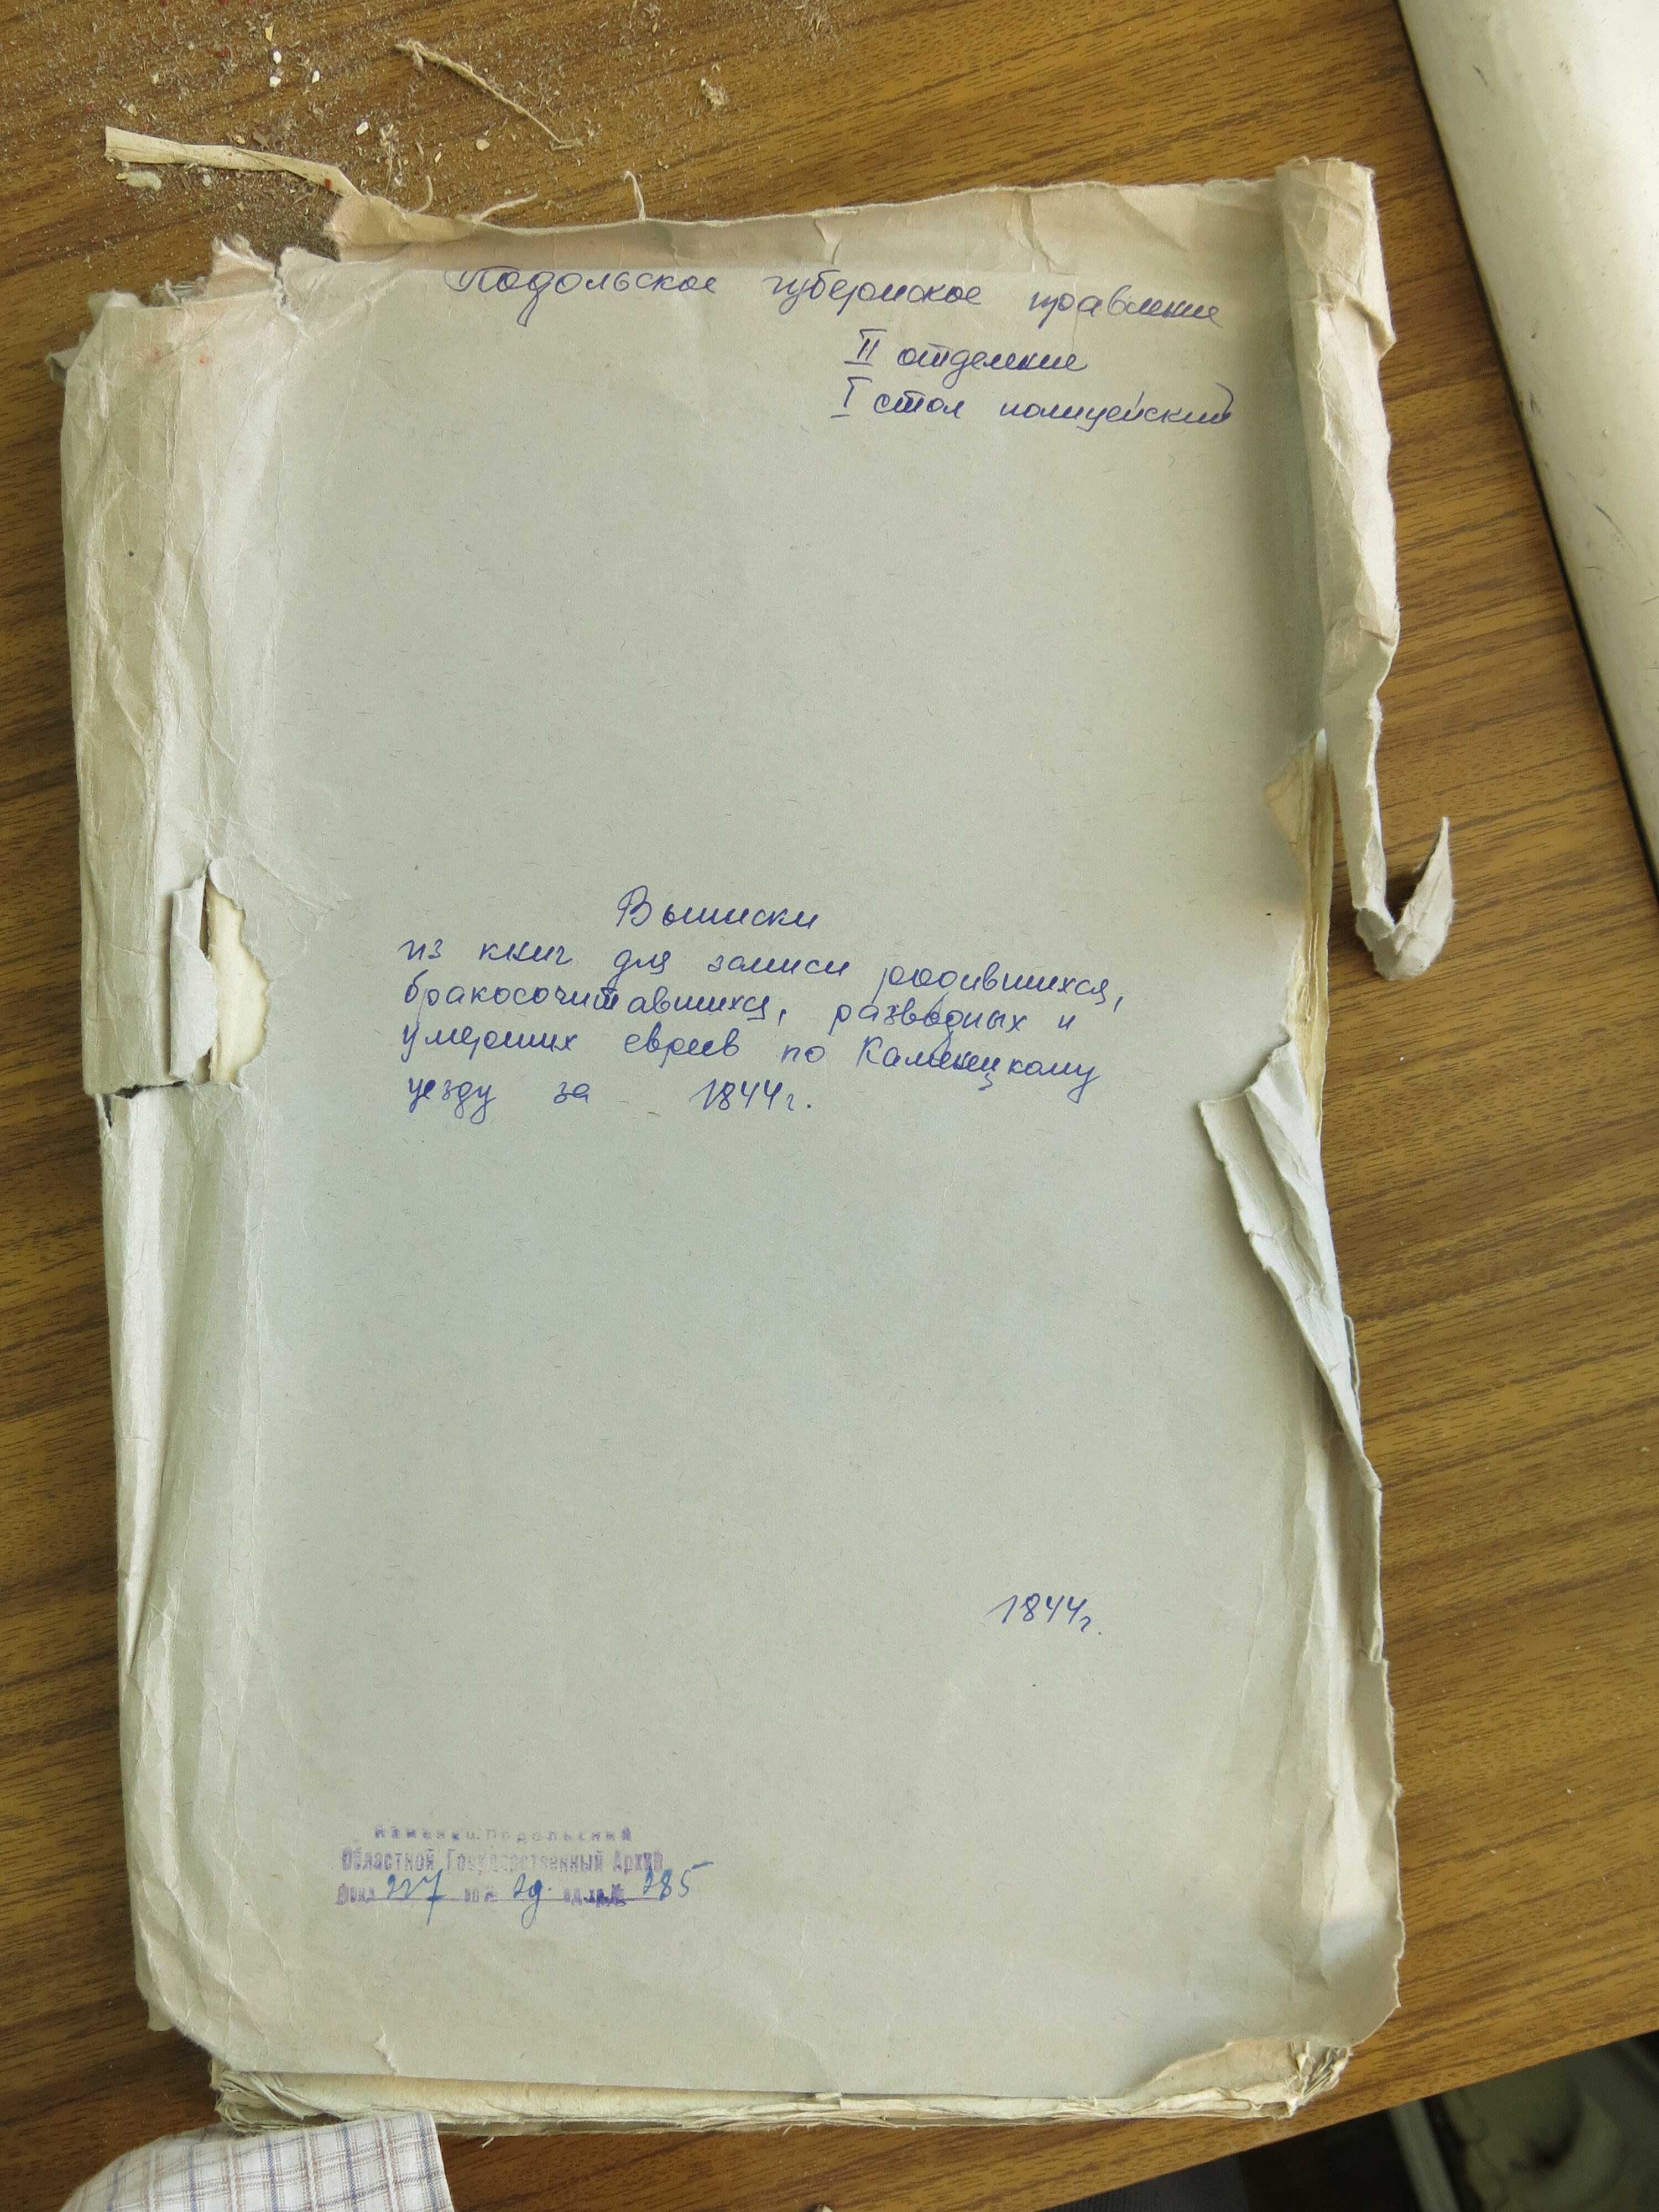 Подольское губернское правление
II отделение
I стол полицейский
Выписки
из книг для записи родившихся,
бракосочитавшихся, разводных и
умерших евреев по Каменецкому
уезду за 1844г.
1844г.
Каменец-Подольский
Областной Государственный Архив
Фонд 227 оп № 2д. ед.хр.№ 285